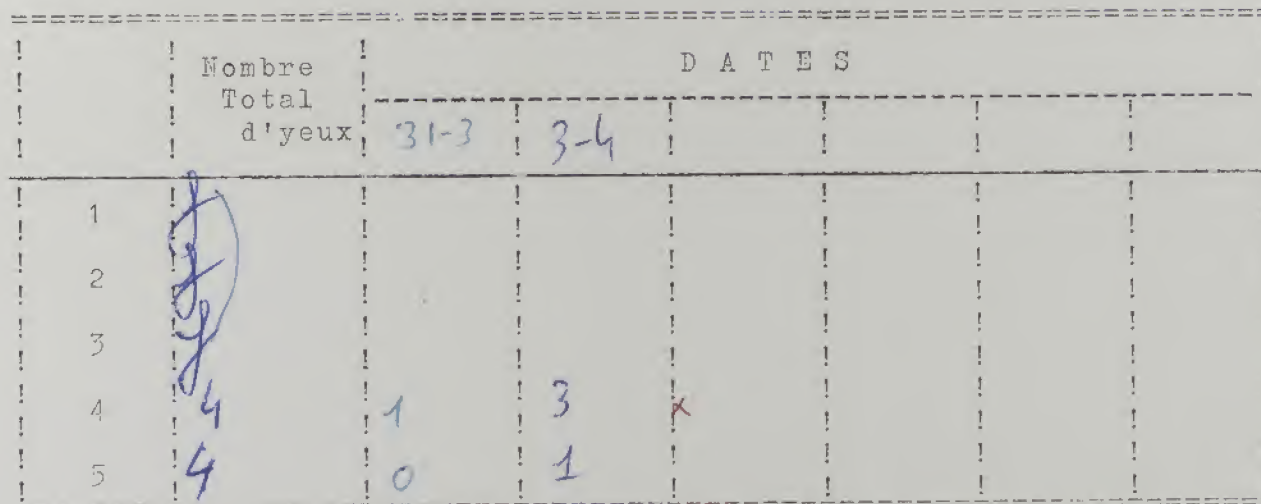 Nombre Total d'yeux
D A T E S
31-3 3-4
1
2
3
4 4 1 3 x
5 4 0 1